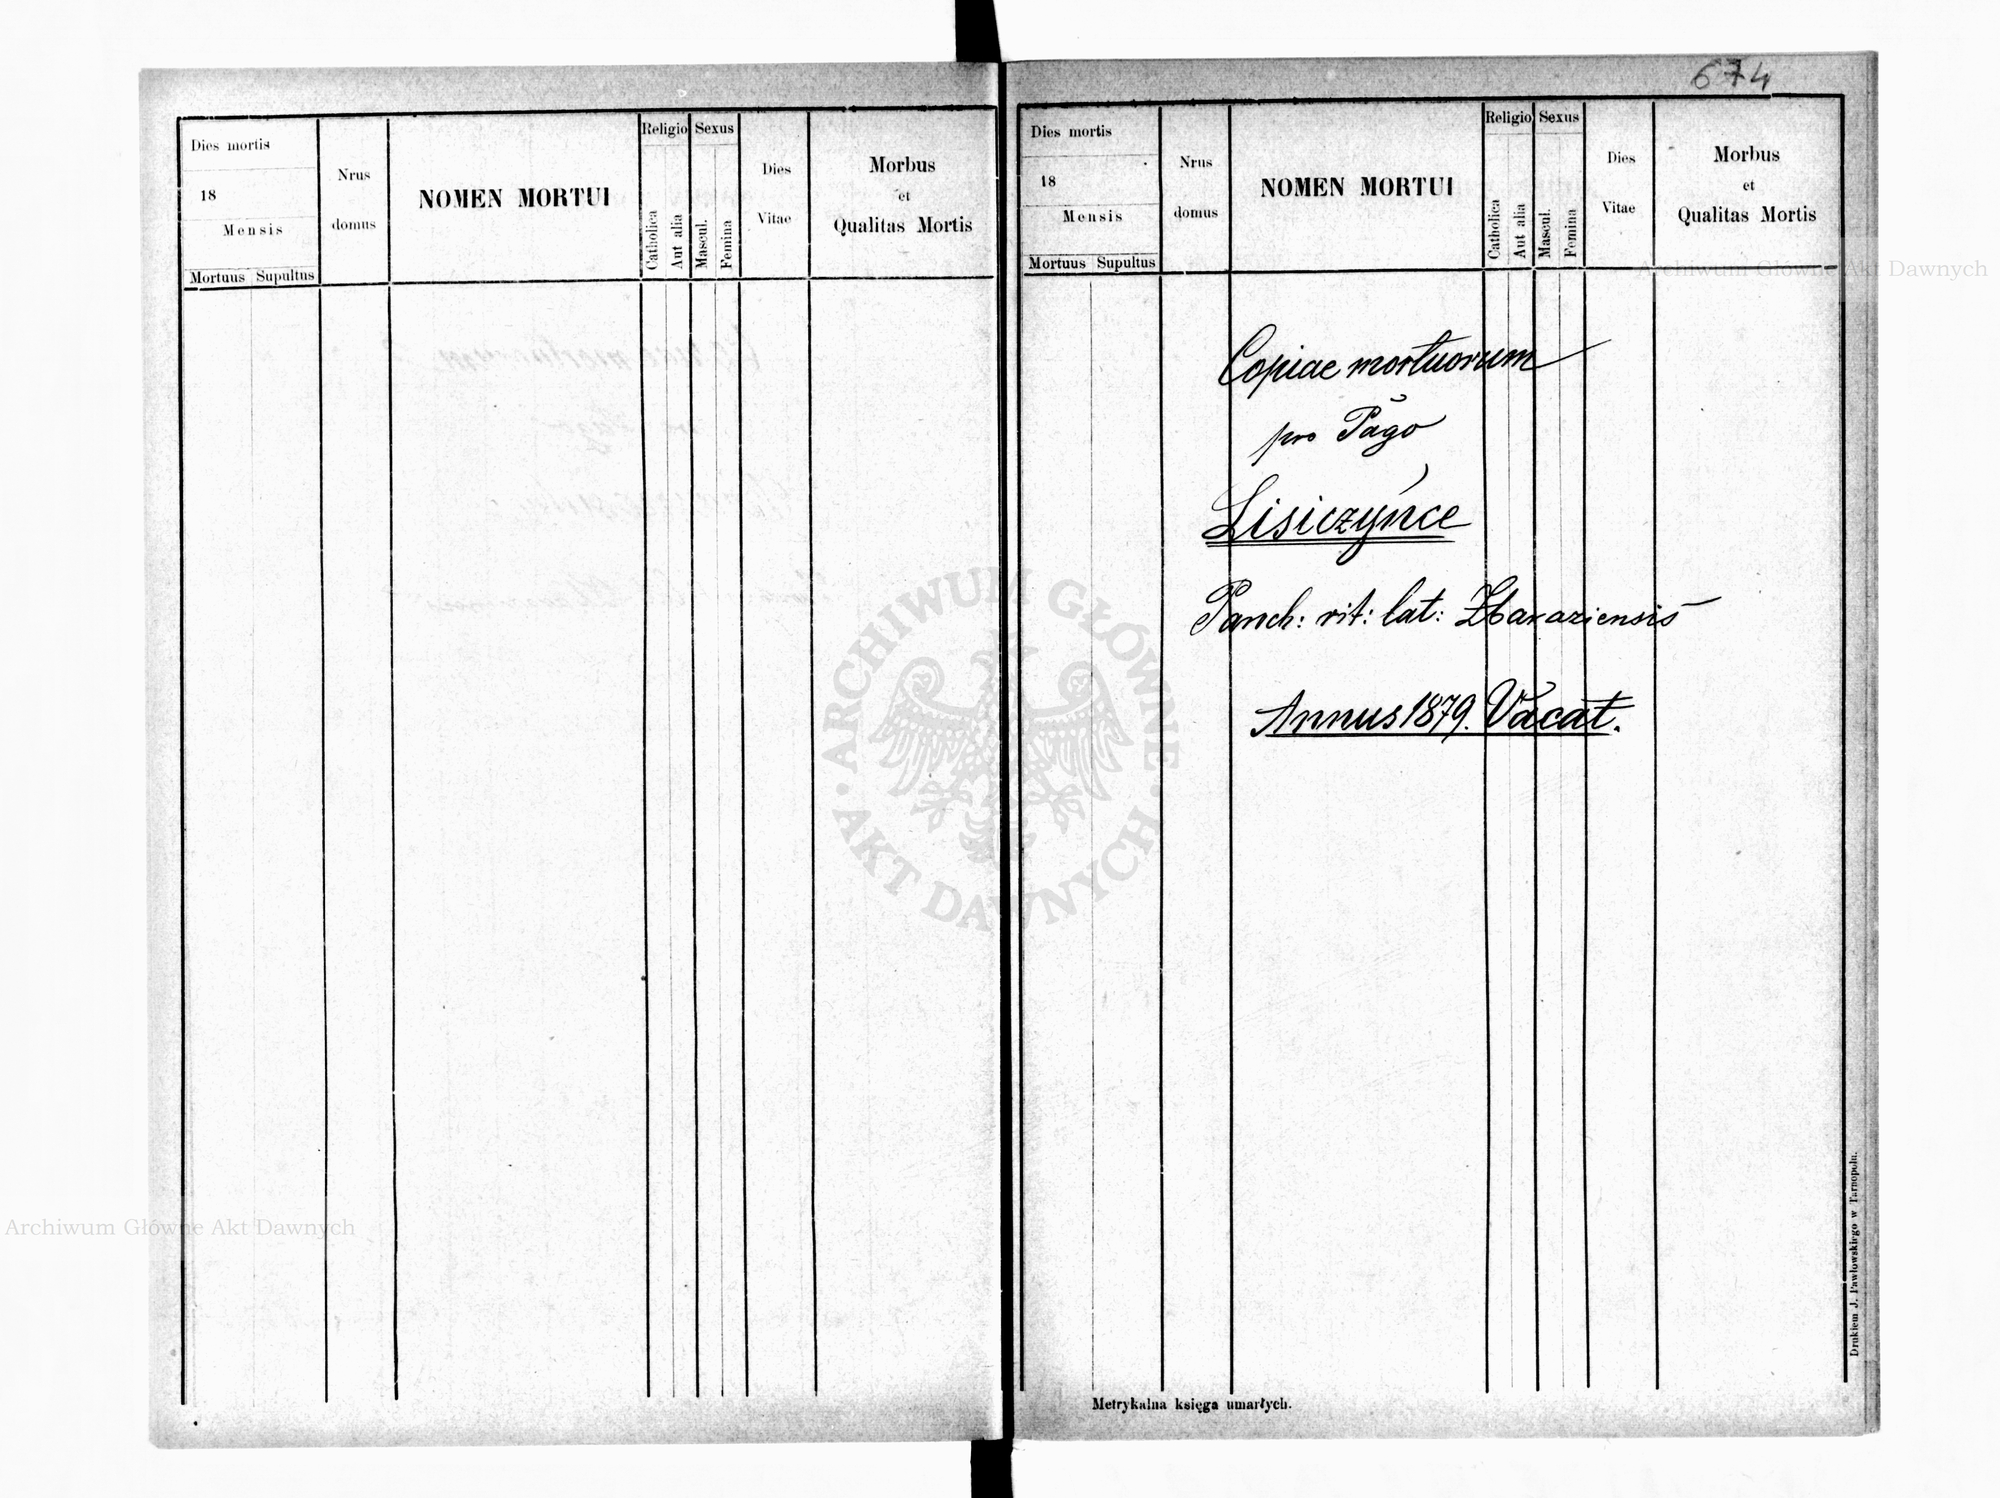 Dies mortis
18
Mensis
Mortuus Supultus
Nrus
domus
NOMEN MORTUI
Religio
Catholica
Aut alia
Sexus
Mascul.
Femina
Dies
Vitae
Morbus
et
Qualitas Mortis
674
Dies mortis
18
Mensis
Mortuus Supultus
Nrus
domus
NOMEN MORTUI
Religio
Catholica
Aut alia
Sexus
Mascul.
Femina
Dies
Vitae
Morbus
et
Qualitas Mortis
Copiae mortuorum
pro Pago
Lisiczyńce
Paroch: rit: lat: Zbaraziensis
Annus 1879. Vacat.
Metrykalna księga umarłych.
Drukiem J. Pawłowskiego w Tarnopolu.
Archiwum Główne Akt Dawnych
Archiwum Główne Akt Dawnych
ARCHIWUM GŁÓWNE
AKT DAWNYCH